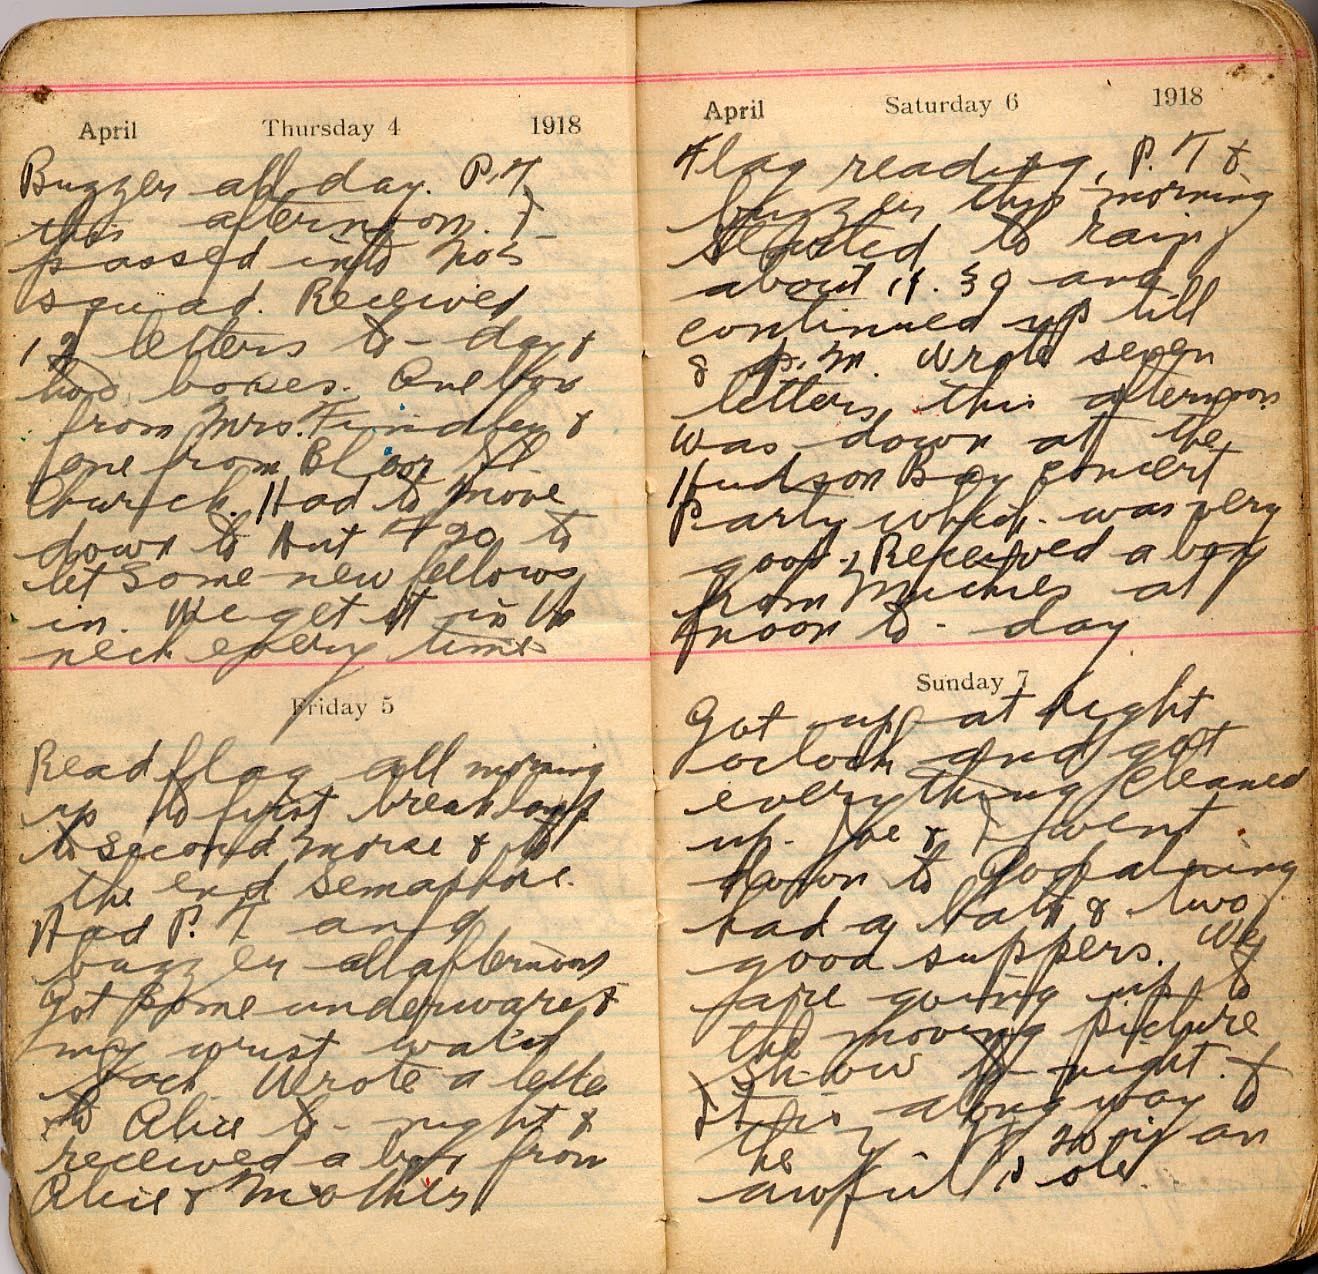 April Thursday 4 1918
Buzzer all day. P.T
this afternoon. I
passed into No 5
squad. Received
12 letters to-day &
two boxes. One box
from Mrs. Findley &
one from Bloor St.
Church. Had to move
down to Hut F 20 to
let some new fellows
in. We get it in the
neck every time
Friday 5
Read flag all morning
up to first break off
to second morse & to
the end Semaphore.
Had P. T and
buzzer all afternoon
Got some underware &
my wrist watch
back. Wrote a letter
to Alice to-night &
received a box from
Alice & Mother
April Saturday 6 1918
Flag reading, P. T &
buzzer this morning
Started to rain
about 11.30 and
continued up till
8 p.m. Wrote seven
letters this afternoon
was down at the
Hudson Bay concert
Party which was very
good. Received a box
from Michies at
noon to-day
Sunday 7
Got up at eight
oclock and got
everything cleaned
up. & I went
down to Godalming
had a bath & two
good suppers. We
are going up to
the moving picture
show to-night.
It is a long way to
the is an
awful hole